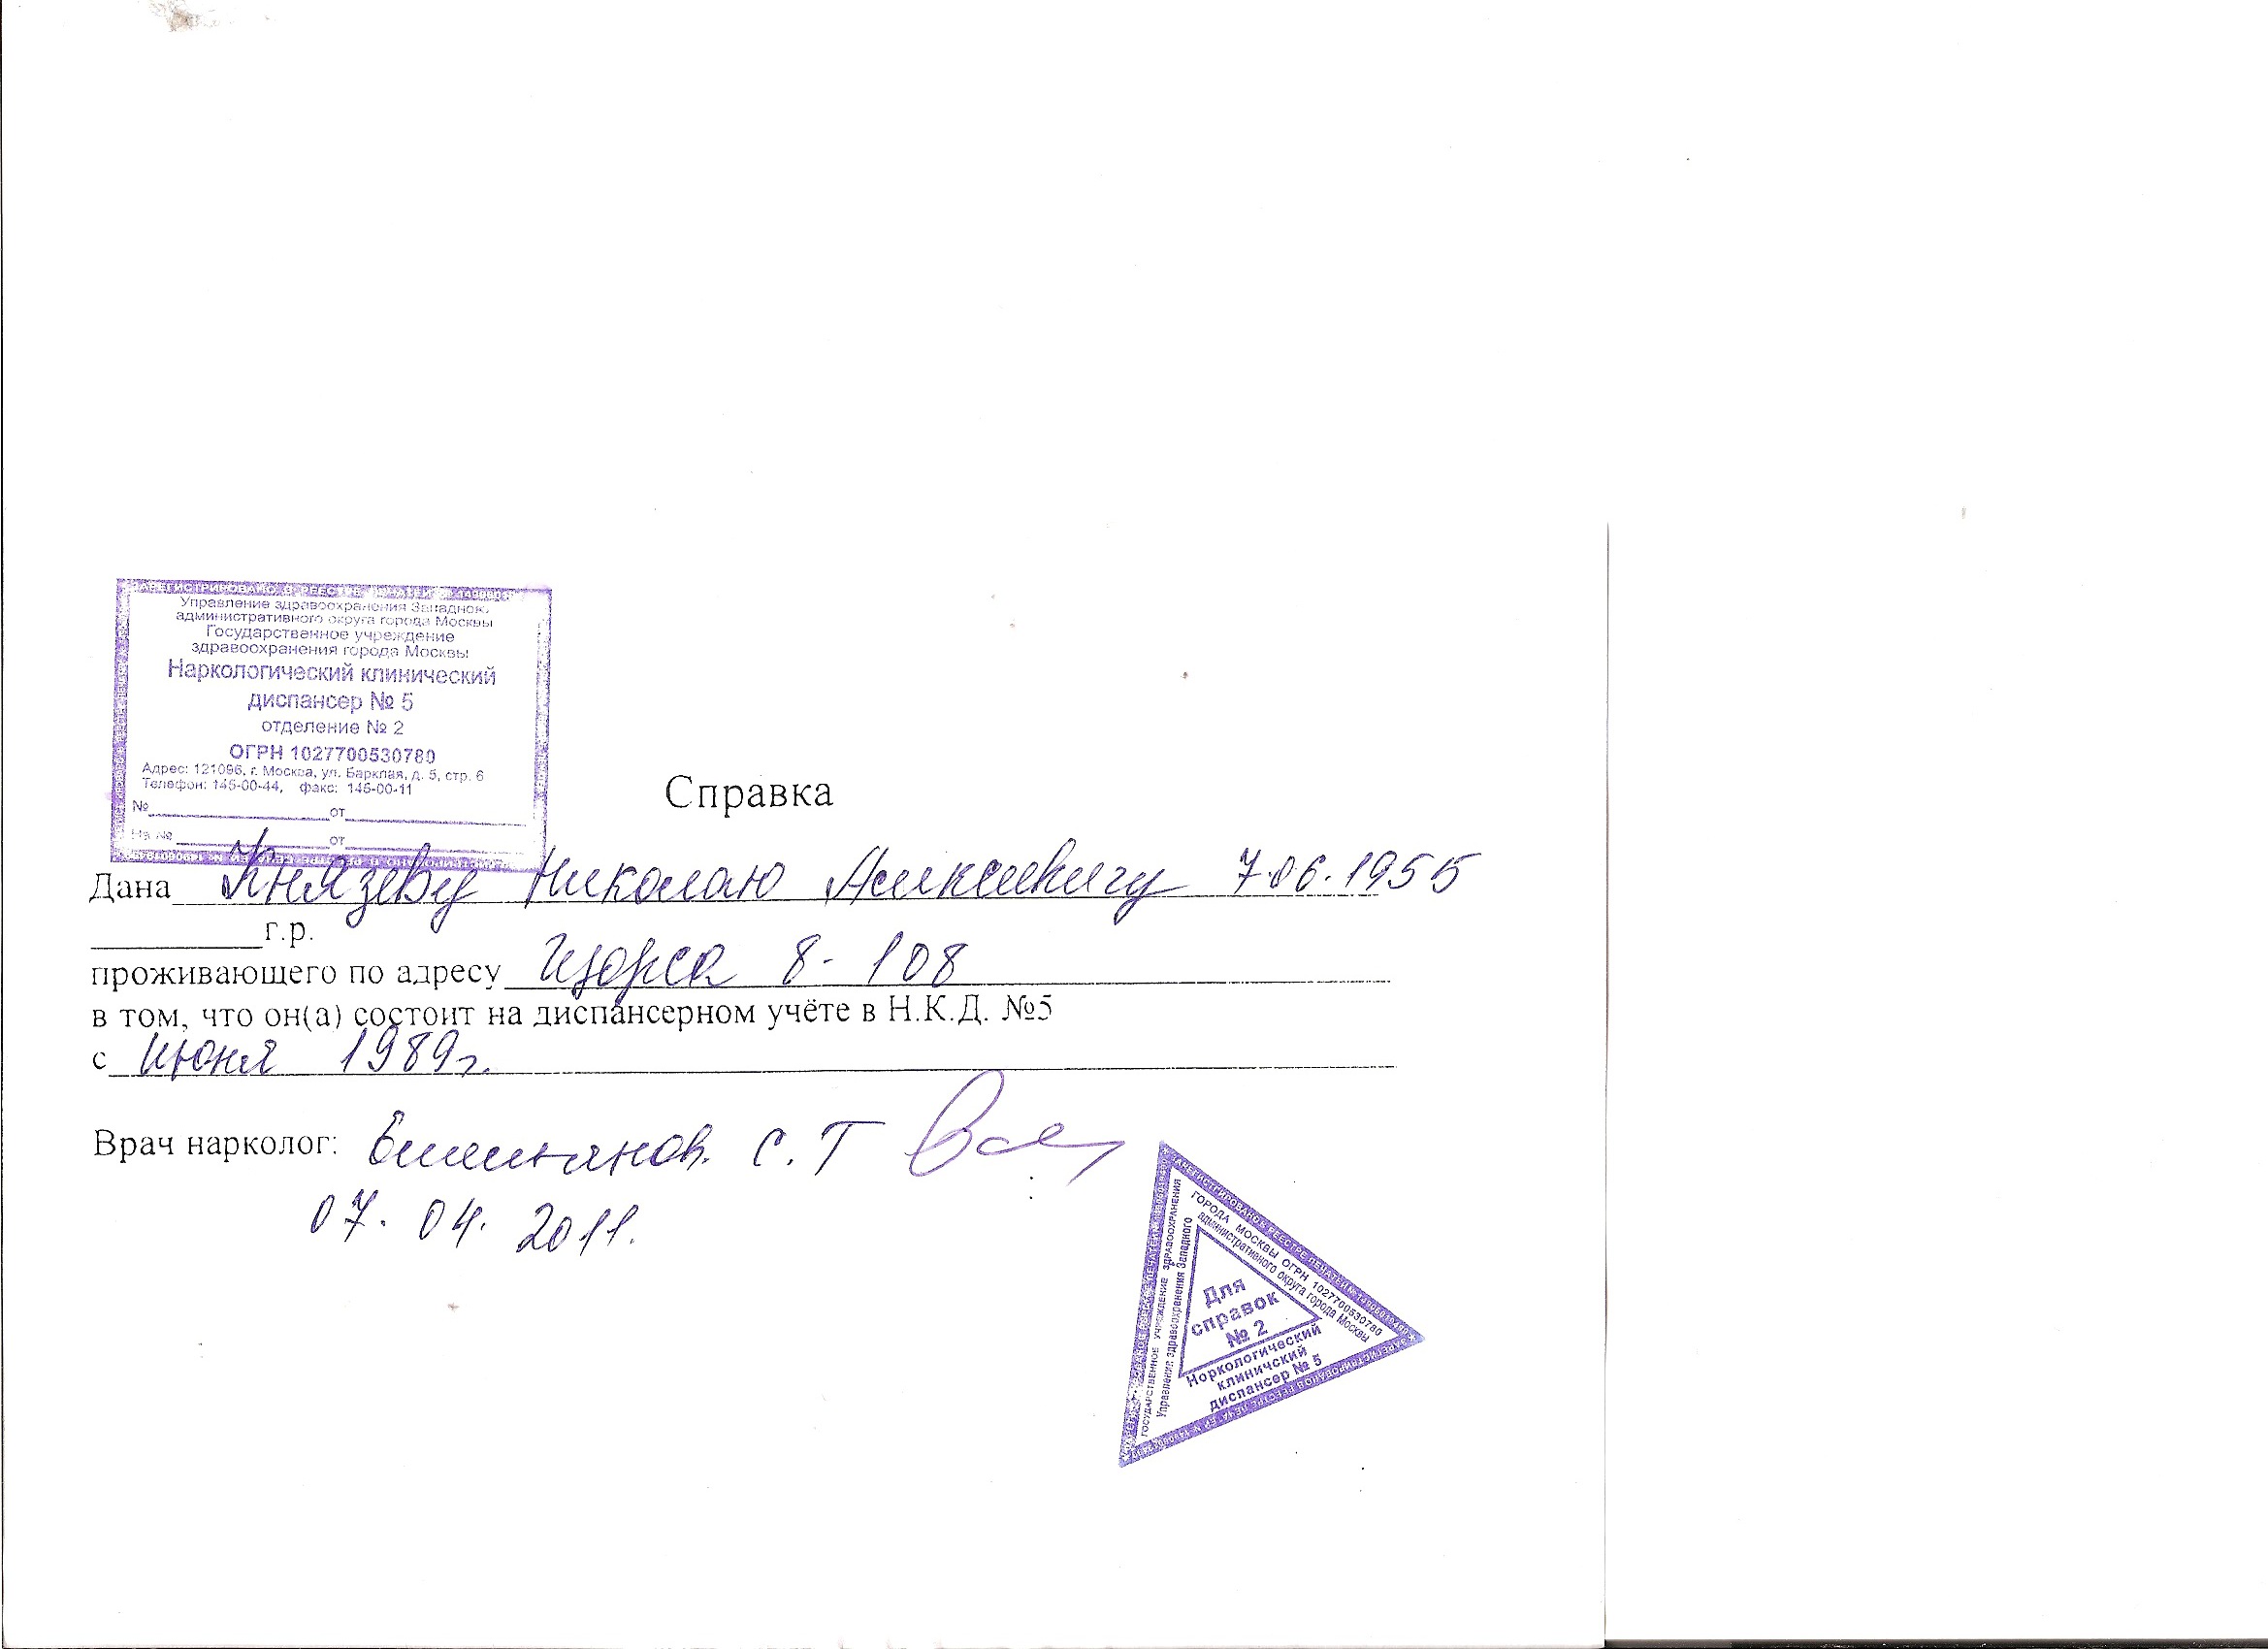 Управление здравоохранения Западного
административного округа города Москвы
Государственное учреждение
здравоохранения города Москвы
Наркологический клинический
диспансер № 5
отделение № 2
ОГРН 1027700530780
Адрес: 121096, г. Москва, ул. Барклая, д. 5, стр. 6
Телефон: 145-00-44, факс: 145-00-11
№ от
На № от
Справка
Дана Князеву Николаю Алексеевичу 7.06.1955
г.р.
проживающего по адресу Щорса 8-108
в том, что он(а) состоит на диспансерном учёте в Н.К.Д. №5
с июня 1989г.
Врач нарколог: С.Т
07.04.2011.
ГОСУДАРСТВЕННОЕ УЧРЕЖДЕНИЕ ЗДРАВООХРАНЕНИЯ
ГОРОДА МОСКВЫ ОГРН 1027700530780
Управления здравоохранения Западного
административного округа города Москвы
Для
справок
№ 2
Норкологический
клиничский
диспансер № 5